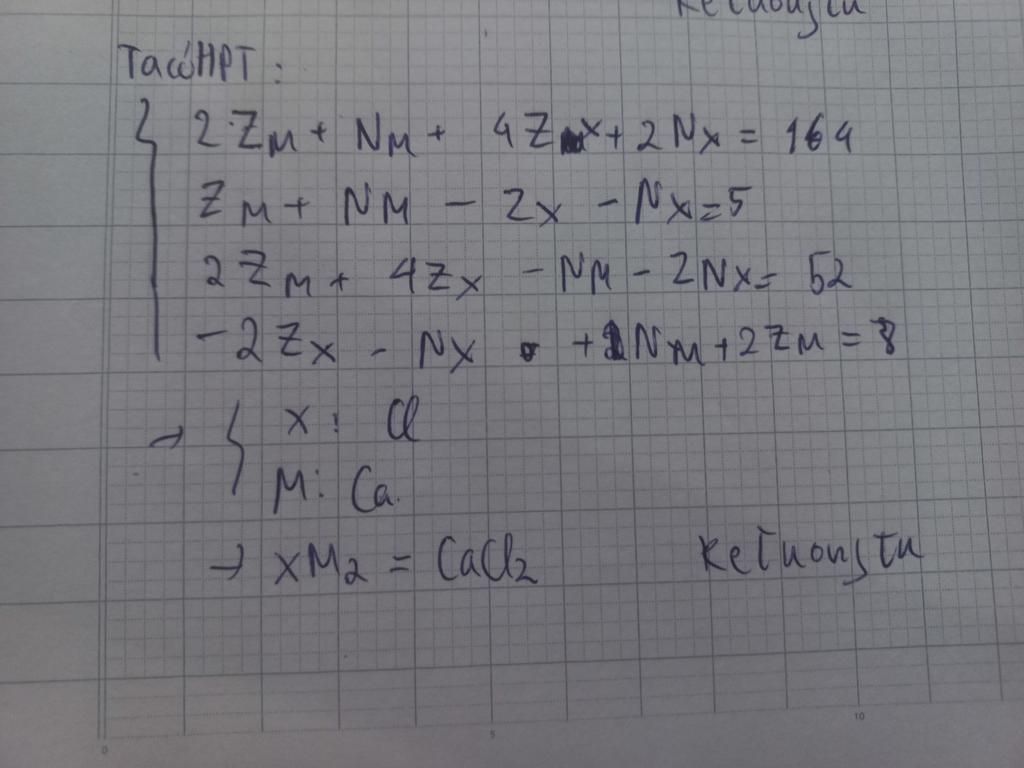 KeTuongTu
Ta có HPT:
2.ZM + NM + 4ZX + 2NX = 164
ZM + NM - ZX - NX = 5
2ZM + 4ZX - NM - 2NX = 52
-2ZX - NX + NM + 2ZM = 8
→ X: Cl
M: Ca.
→ XM2 = CaCl2 KeTuongTu
0 5 10